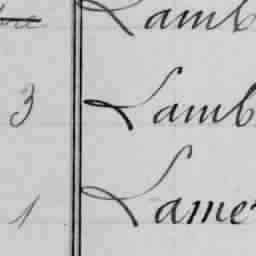 Lamb
3 Lamb
1 Lame